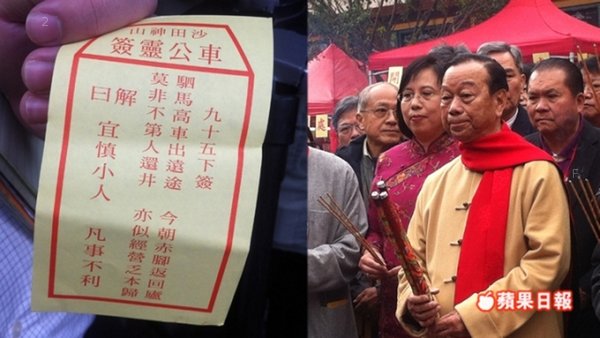 沙田神山
車公靈簽
九十五下簽
駟馬高車出遠途 今朝赤腳返回廬
莫非不第人還井 亦似經營乏本歸
解
曰 宜慎小人 凡事不利
蘋果日報